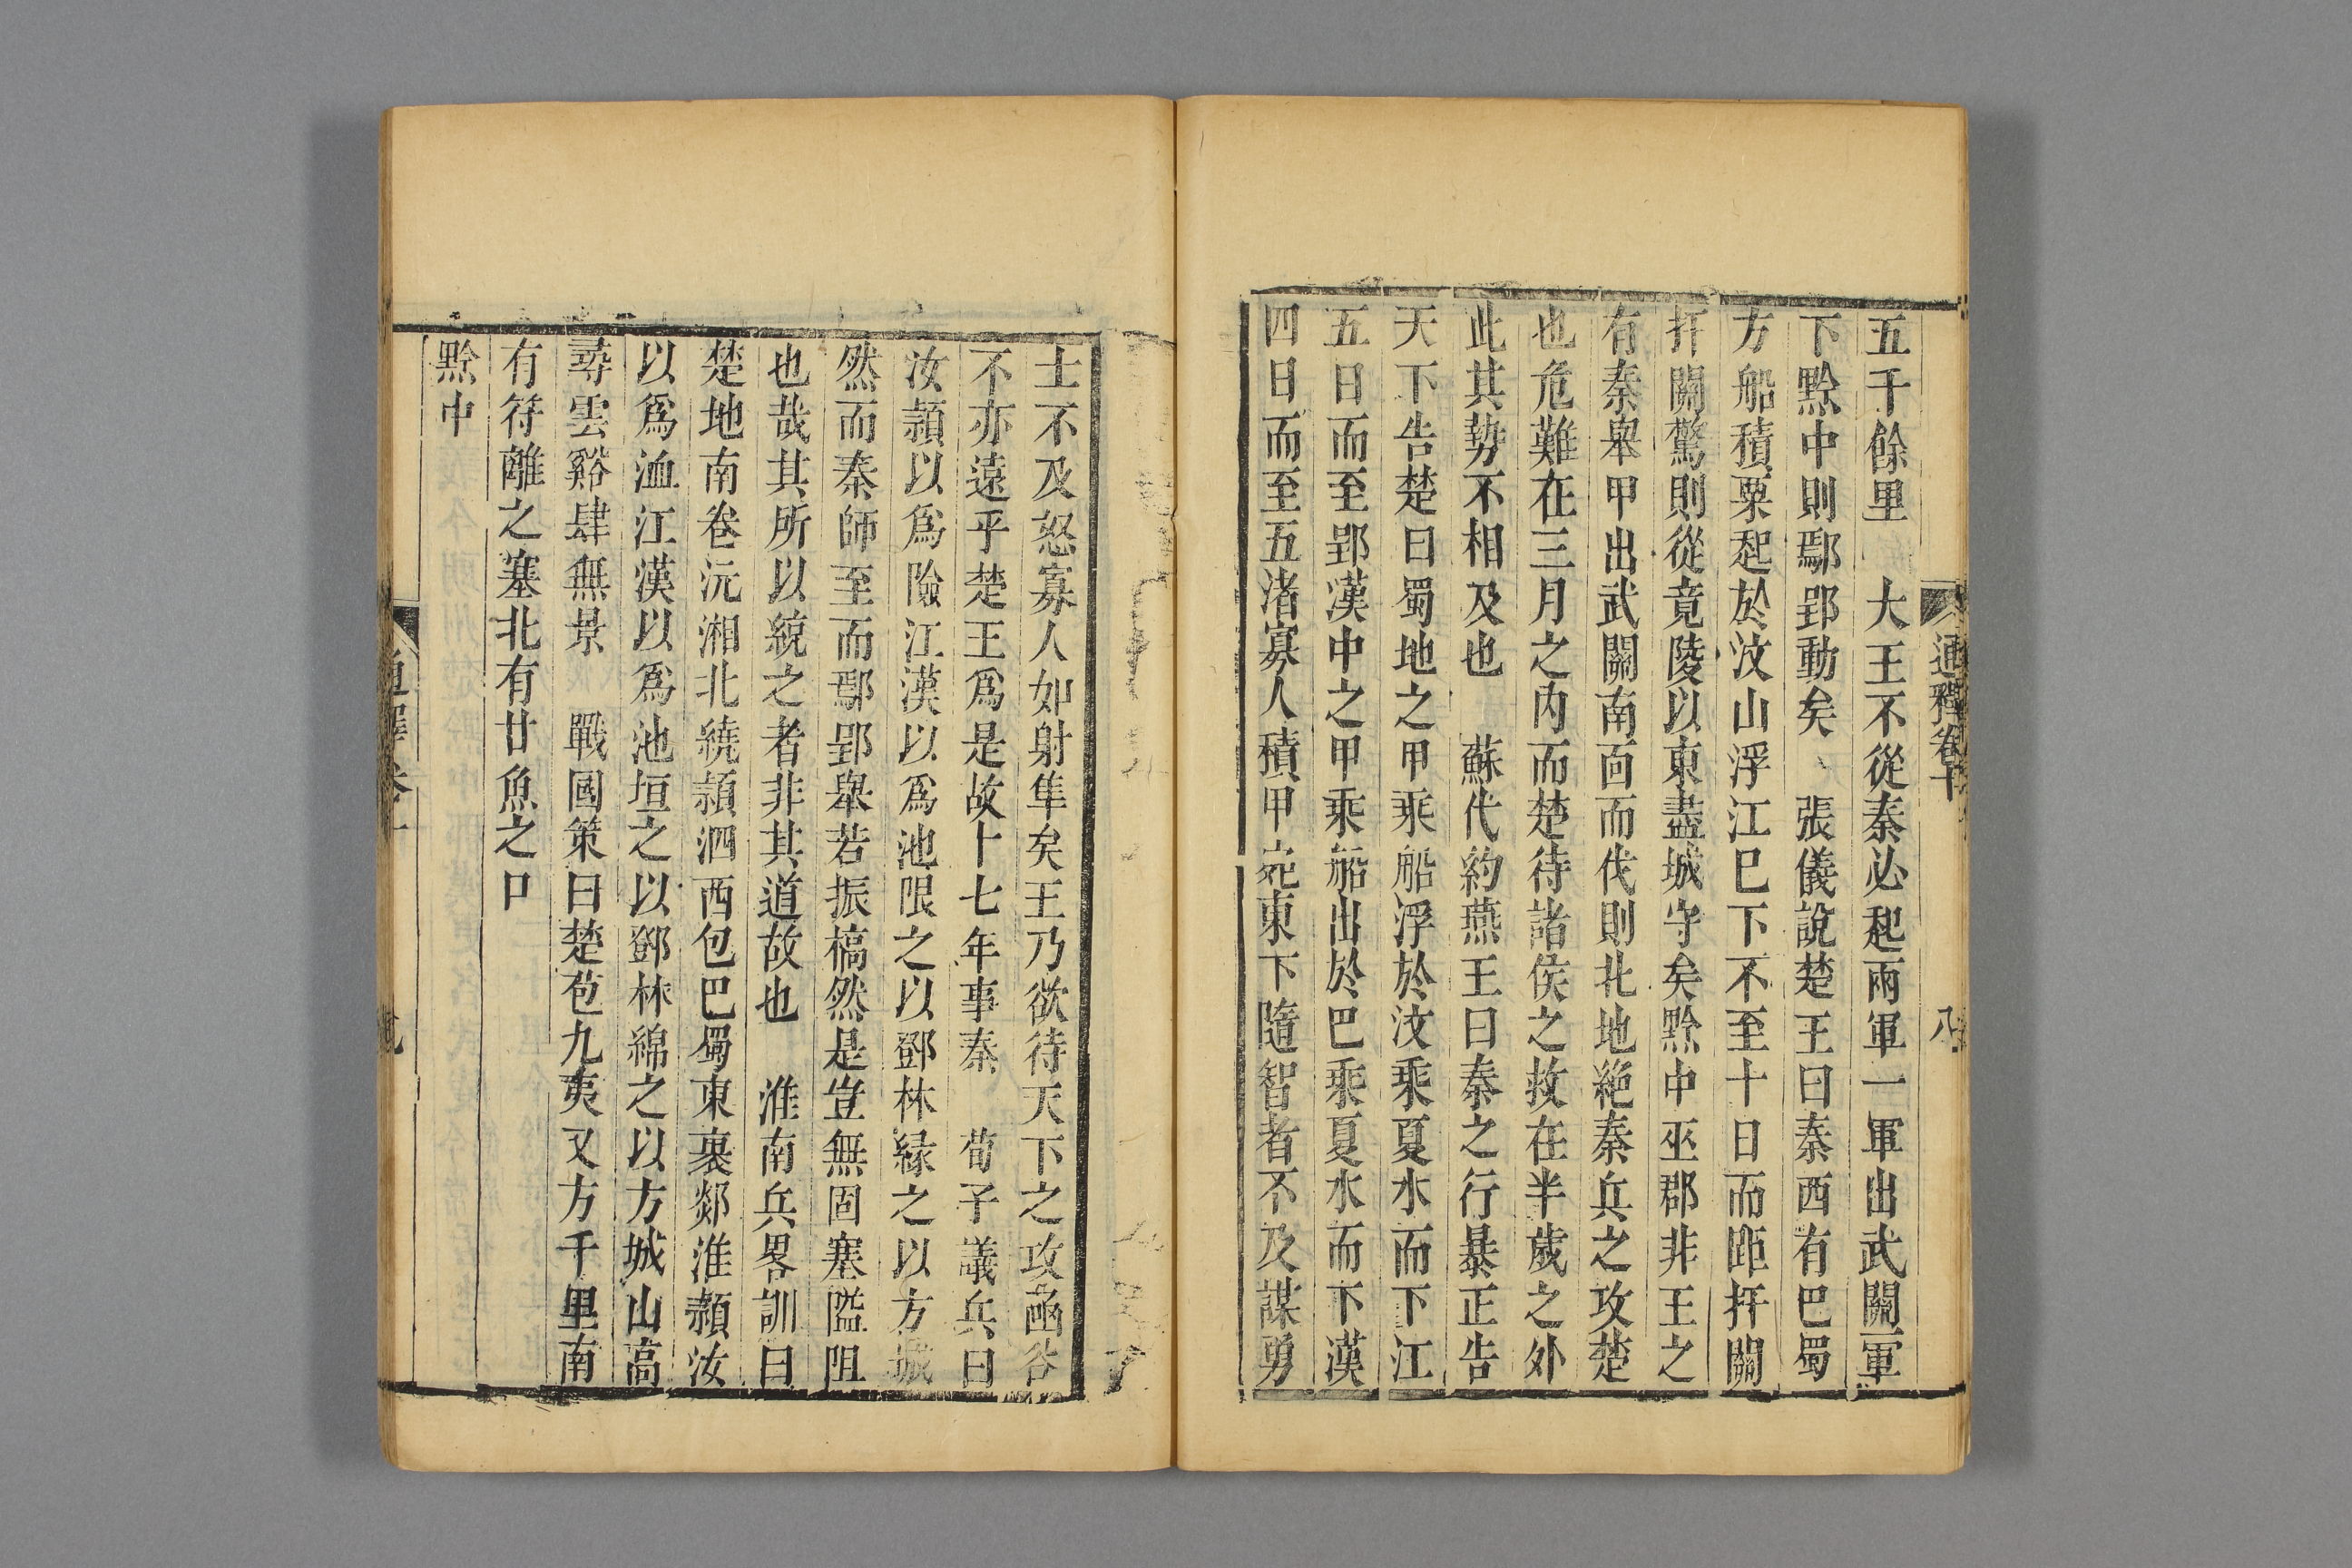 通釋卷十 八
五千餘里 大王不從秦必起兩軍一軍出武關一軍
下黔中則鄢郢動矣 張儀說楚王曰秦西有巴蜀
方船積粟起於汶山浮江巳下不至十日而距扞關
扞關驚則從竟陵以東盡城守矣黔中巫郡非王之
有秦舉甲出武關南面而伐則北地絕秦兵之攻楚
也危難在三月之内而楚待諸侯之救在半歲之外
此其勢不相及也 蘇代約燕王曰秦之行暴正告
天下告楚曰蜀地之甲乘船浮於汶乘夏水而下江
五日而至郢漢中之甲乘船出於巴乘夏水而下漢
四日而至五渚寡人積甲宛東下隨智者不及謀勇
士不及怒寡人如射隼矣王乃欲待天下之攻函谷
不亦遠乎楚王爲是故十七年事秦 荀子議兵曰
汝潁以爲險江漢以爲池限之以鄧林緣之以方城
然而秦師至而鄢郢舉若振槁然是豈無固塞隘阻
也哉其所以統之者非其道故也 淮南兵畧訓曰
楚地南卷沅湘北繞潁泗西包巴蜀東裹郯淮潁汝
以爲洫江漢以爲池垣之以鄧林綿之以方城山高
尋雲谿肆無景 戰國策曰楚苞九夷又方千里南
有符離之塞北有甘魚之口
黔中